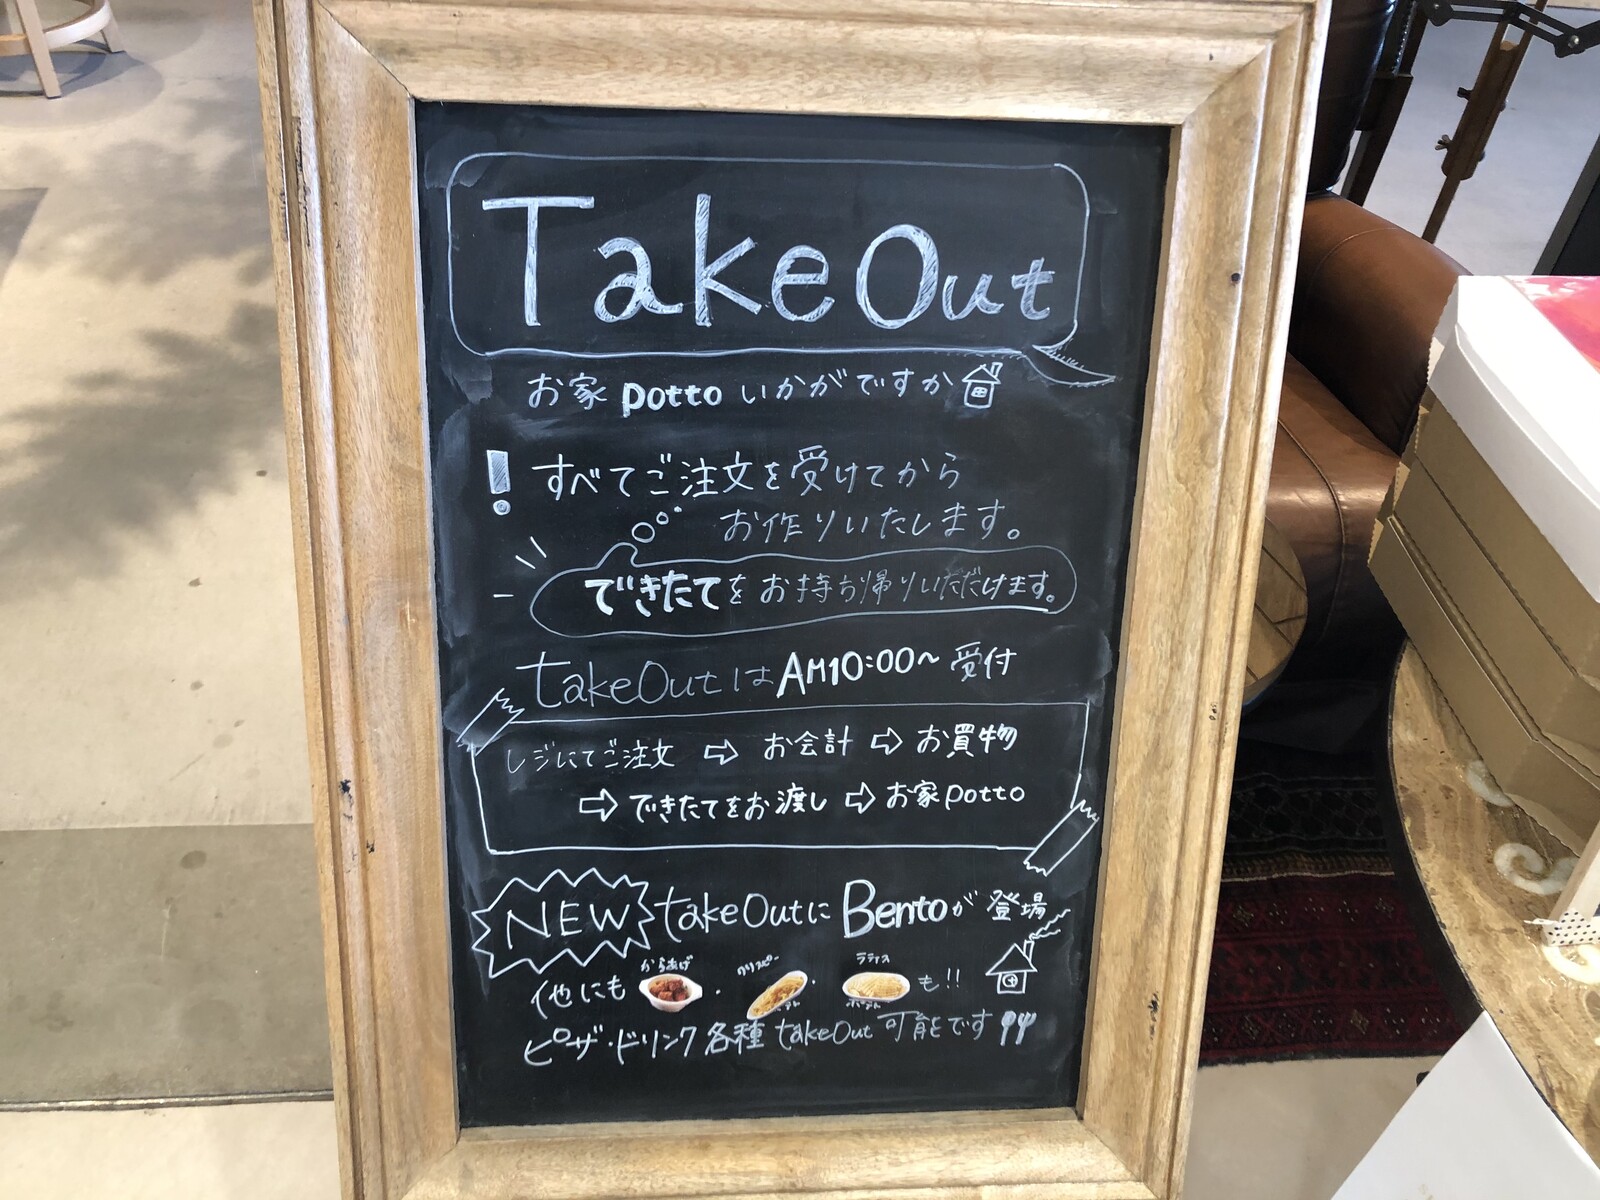 Take Out
お家 potto いかがですか
! すべてご注文を受けてから
お作りいたします。
できたてをお持ち帰りいただけます。
takeOutは AM10:00~ 受付
レジにてご注文 ⇨ お会計 ⇨ お買物
⇨ できたてをお渡し ⇨ お家potto
NEW takeOutに Bentoが 登場
からあげ クリスピー ラティス
他にも ・ ・ も!!
ポテト
ピザ・ドリンク各種 takeOut 可能です